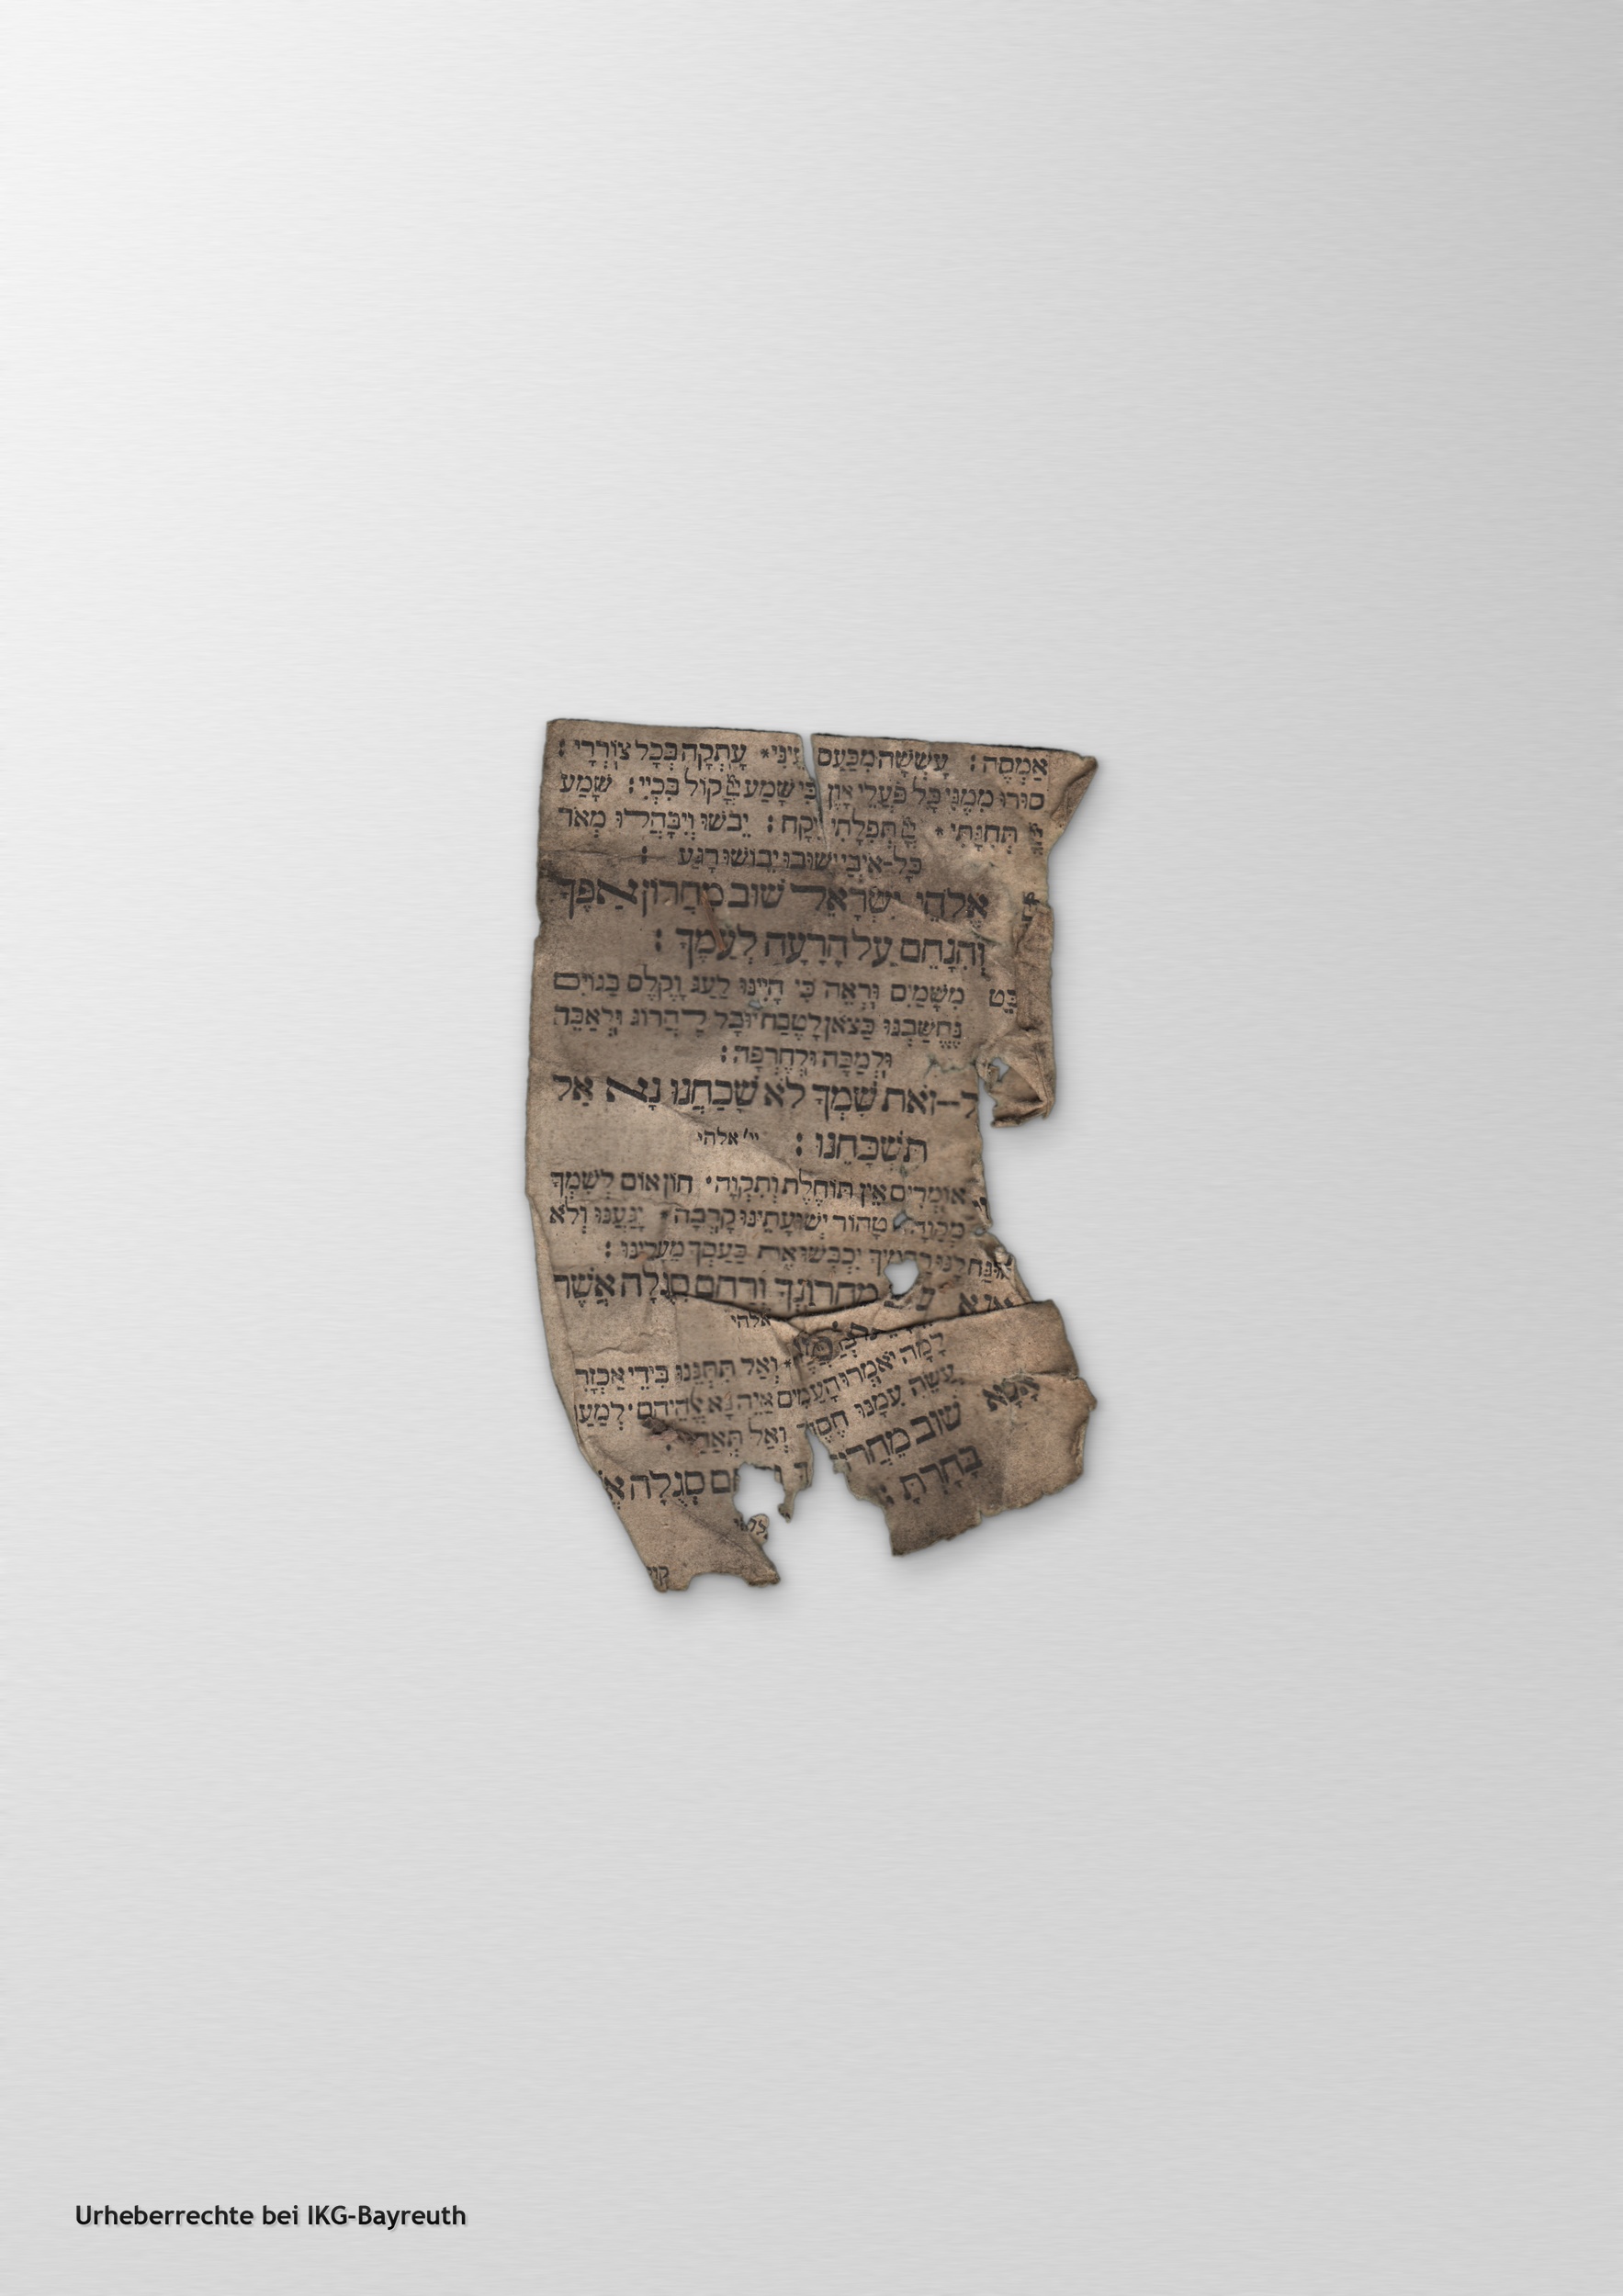 אַמְסֶה: עָשְׁשָׁה מִכַּעַס עֵינִי* עָתְקָה בְּכָל צוֹרְרָי:
סוּרוּ מִמֶּנִּי כָּל פֹּעֲלֵי אָוֶן כִּי שָׁמַע קוֹל בִּכְיִי: שָׁמַע
תְּחִנָּתִי* תְּפִלָּתִי יִקָּח: יֵבֹשׁוּ וְיִבָּהֲלוּ מְאֹד
כָּל-אֹיְבָי יָשׁוּבוּ יֵבוֹשׁוּ רָגַע:
אֱלֹהֵי יִשְׂרָאֵל שׁוּב מֵחֲרוֹן אַפֶּךָ
וְהִנָּחֵם עַל הָרָעָה לְעַמֶּךָ:
מִשָּׁמַיִם וּרְאֵה כִּי הָיִינוּ לַעַג וָקֶלֶס בַּגּוֹיִם
נֶחְשַׁבְנוּ כַּצֹאן לָטֶבַח יוּבָל לַהֲרוֹג וּלְאַבֵּד
וּלְמַכָּה וּלְחֶרְפָּה:
זֹאת שִׁמְךָ לֹא שָׁכָחְנוּ נָא אַל
תִּשְׁכָּחֵנוּ: יי' אלהי
אוֹמְרִים אֵין תּוֹחֶלֶת וְתִקְוָה* חוֹן אוֹם לְשִׁמְךָ
טָהוֹר יְשׁוּעָתֵינוּ קָרְבָה* יָגַעְנוּ וְלֹא
יִכְבְּשׁוּ אֶת כַּעַסְךָ מֵעָלֵינוּ:
אנא מֵחֲרוֹנְךָ וְרַחֵם סְגֻלָּה אֲשֶׁר
אלהי
וְאַל תִּתְּנֵנוּ בִּידֵי אַכְזָר
לָמָּה יֹאמְרוּ הָעַמִּים אַיֵּה נָא אֱלֹהֵיהֶם* לְמַעַ
עֲשֵׂה עִמָּנוּ חֶסֶד וְאַל תְּאַחַר
אָנָא שׁוּב מֵחֲרוֹ סְגֻלָּה
בָּחָרְתָּ:
Urheberrechte bei IKG-Bayreuth